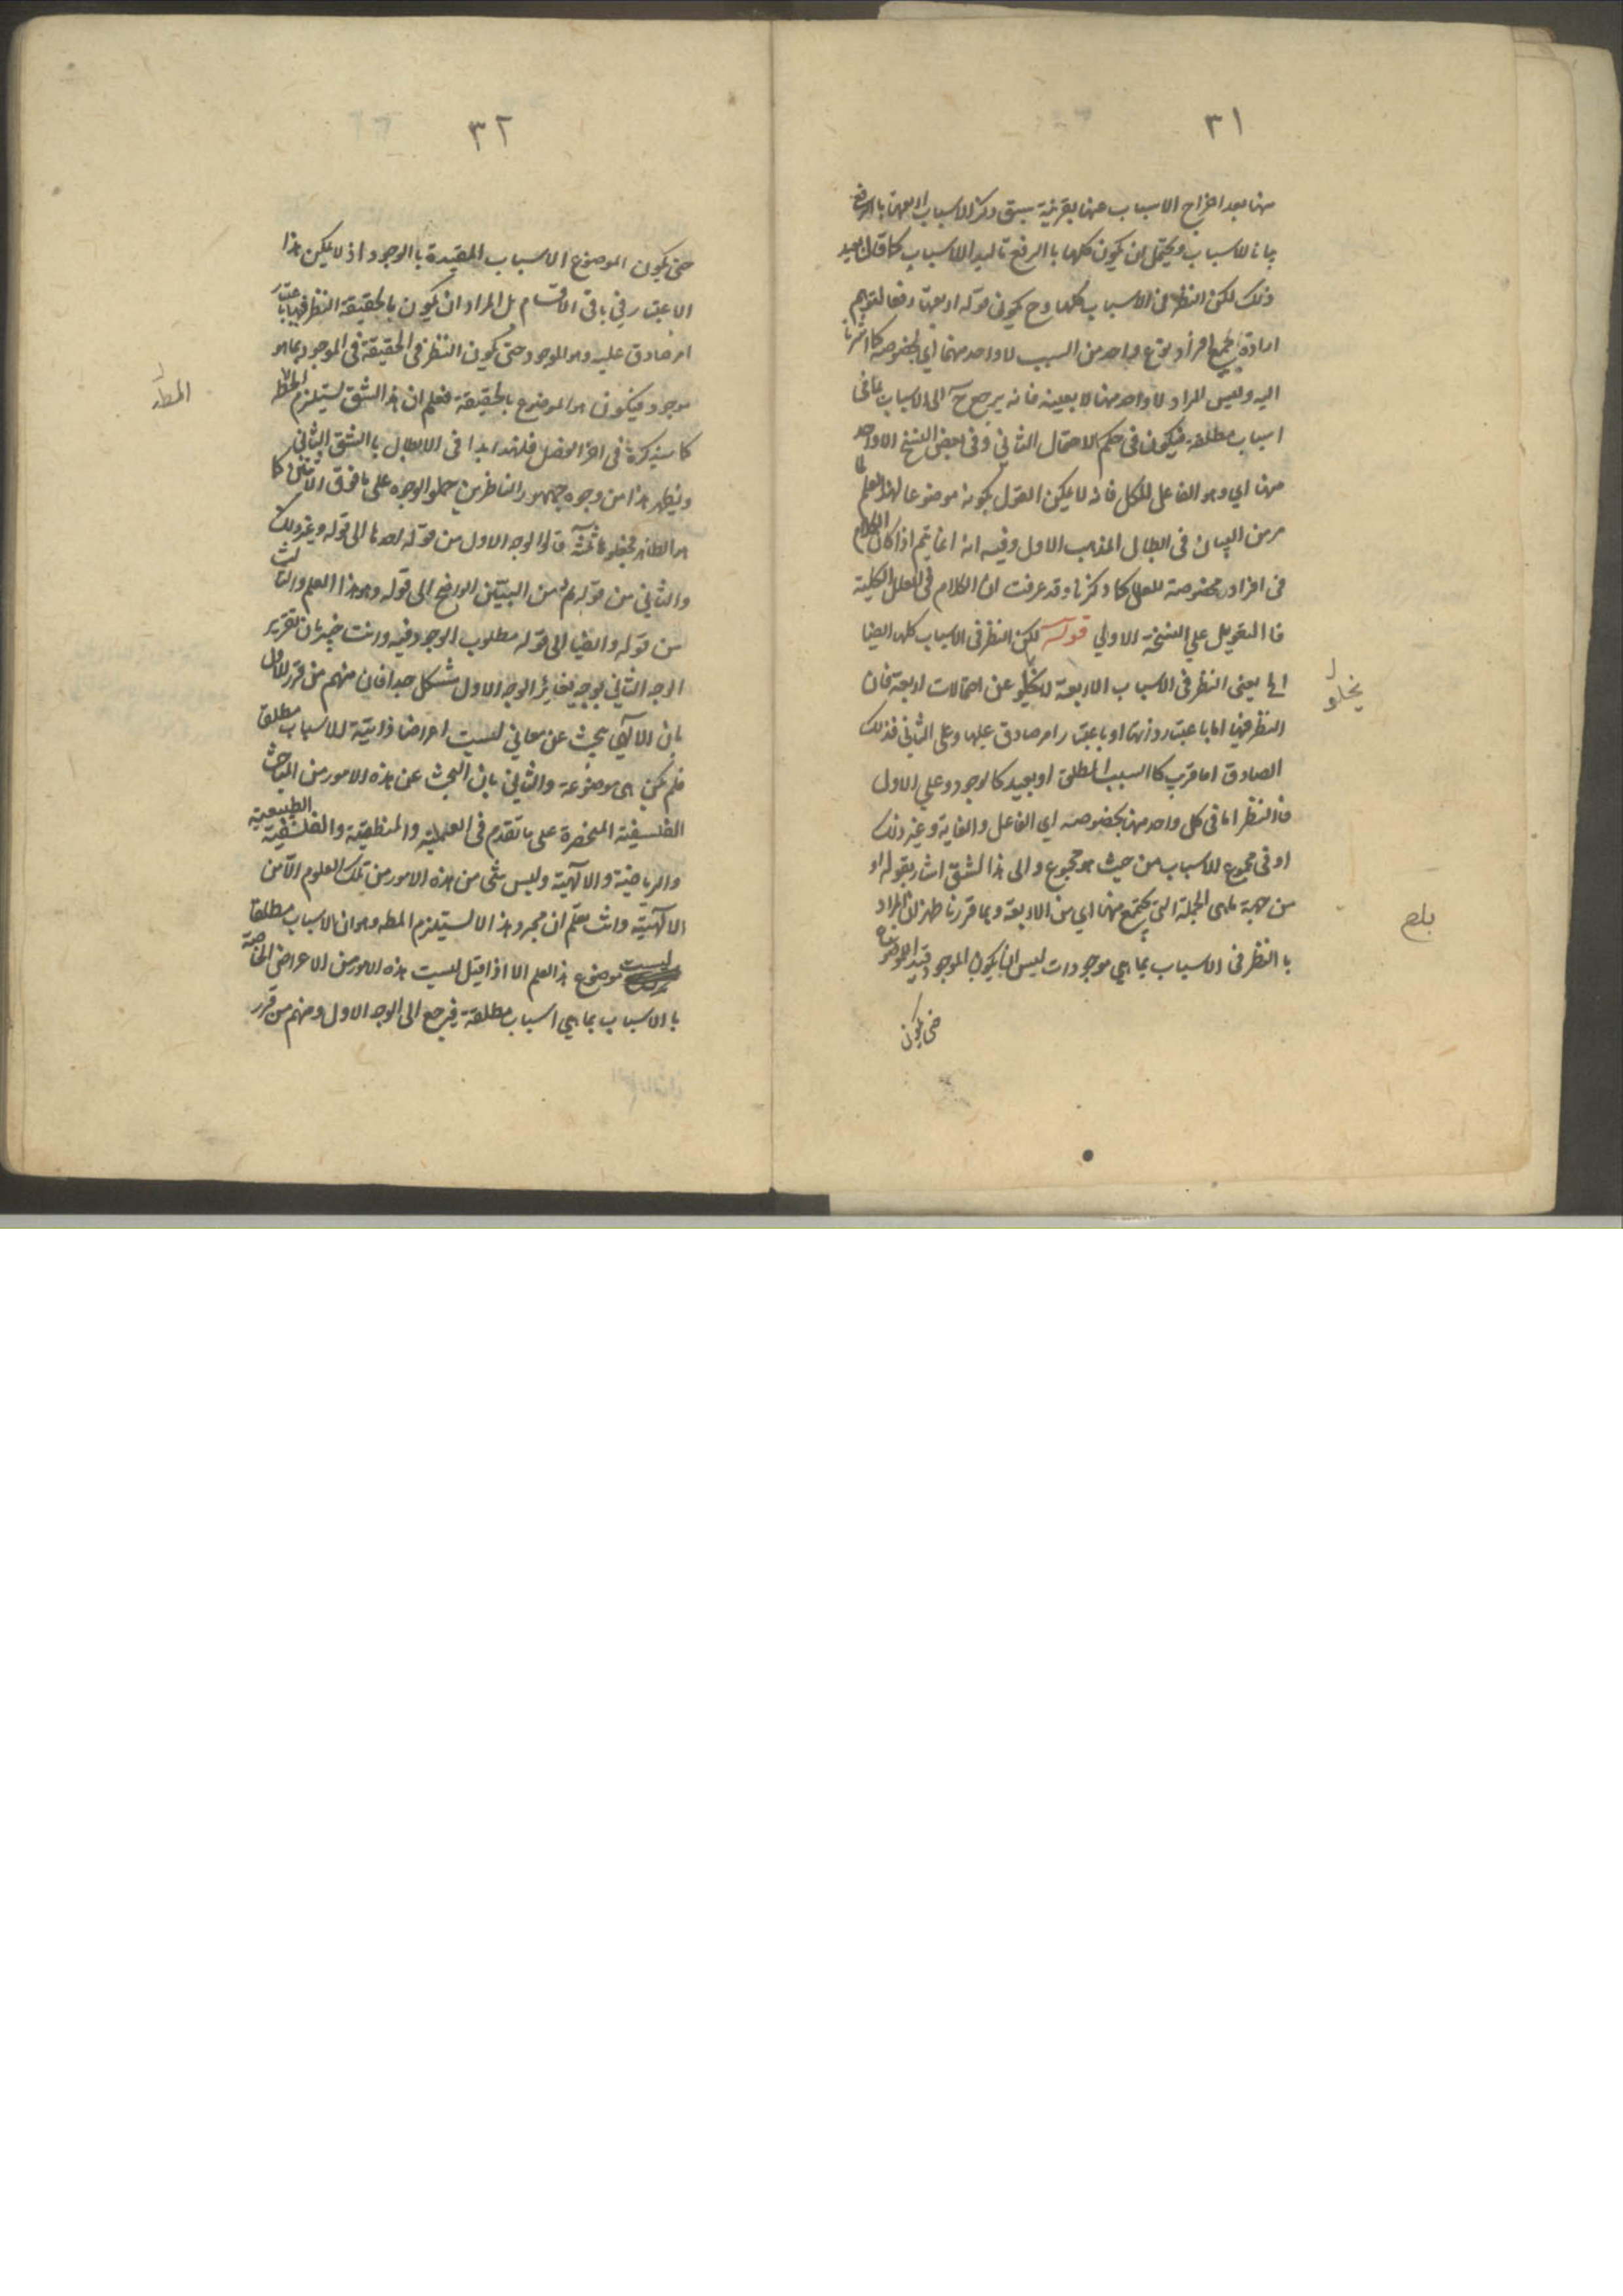 ٣١
منها بعد اخراج الاسباب عنها بقرينة سبق ذكر الاسباب اربعتها
بيانا للاسباب ويحتمل ان يكون كلها با الرفع تاكيد الاسباب كما قال بعيد
ذلك لكن النظر فى الاسباب كلها وح يكون قوله اربعتها دفعا لتوهم
ارادة جميع افراد نوع واحد من السبب لا واحد منها اي بخصوصه كما اشرنا
اليه وليس المراد لا واحد منها لا بعينه فانه يرجع ح الى الاسباب بما هى
اسباب مطلقة فيكون فى حكم الاحتمال الثاني وفى بعض النسخ الا واحد
منها اي وهو الفاعل للكل فانه لا يمكن القول بكونه موضوعا لهذا العلم لما
مر من البيان فى ابطال المذهب الاول وفيه انه انما يتم اذا كان الكلام
فى افراد مخصوصة للعلل كما ذكرنا وقد عرفت ان الكلام فى العلل الكلية
فا التعويل علي النسخة الاولي قوله لكن النظر فى الاسباب كلها ايضا
الخ يعنى النظر فى الاسباب الاربعة لا يخلو عن احتمالات اربعة فان
النظر فيها اما باعتبار ذواتها او باعتبار امر صادق عليها وعلى الثانى فذلك
الصادق اما قريب كا السبب المطلق او بعيد كالوجود وعلي الاول
فا النظر اما فى كل واحد منها بخصوصه اي الفاعل والغاية وغير ذلك
او فى مجموع للاسباب من حيث هو مجموع والى هذا الشق اشار بقوله او
من جهة ما هى الجملة التي يجتمع منها اي من الاربعة وبما قررنا ظهر ان المراد
با النظر فى الاسباب بما هي موجودات ليس ان يكون الموجود قيد الموضوع
حتى يكون
يخلو
بلغ
٣٢
حتى يكون الموضوع الاسباب المقيدة با الوجود اذ لا يمكن هذا
الاعتبار فى باقى الاقسام بل المراد ان يكون بالحقيقة النظر فيها باعتبار
امر صادق عليه وهو الموجود حتى يكون النظر فى الحقيقة فى الموجود بما هو
موجود فيكون هو الموضوع بالحقيقة فعلم ان هذا الشق يستلزم المطلـ
كما سيذكره فى اخر الفصل فلهذا بدا فى الابطال با الشق الثاني
ويظهر هذا من وجوه جمهور الناظرين حملوا الوجوه على ما فوق الاثنين كما
هو الظاهر فجعلوها ثلثة قالوا الوجه الاول من قوله احدها الى قوله وغير ذلك
والثاني من قوله ثم من البين الواضح الى قوله وهو هذا العلم والثالث
من قوله وايضا الى قوله مطلوب الوجود فيه وانت خبير بان تقرير
الوجه الثاني بوجه يغاير الوجه الاول مشكل جدا فان منهم من قرر الاول
بان الالهي يبحث عن معاني ليست اعراضا ذاتية للاسباب مطلقا
فلم تكن هى موضوعة والثاني بان البحث عن هذه الامور من المباحث
الفلسفية المنحصرة على ما تقدم فى العملية والمنطقية والفلسفية الطبيعية
والرياضية والالهية وليس شى من هذه الامور من تلك العلوم الا من
الالهية وانت تعلم ان مجرد هذا لا يستلزم المطـ وهو ان الاسباب مطلقا
ليست موضوع هذا العلم الا اذا قيل ليست هذه الامور من الاعراض الخاصة
با الاسباب بما هي اسباب مطلقة فيرجع الى الوجه الاول ومنهم من قرر
المطلـ